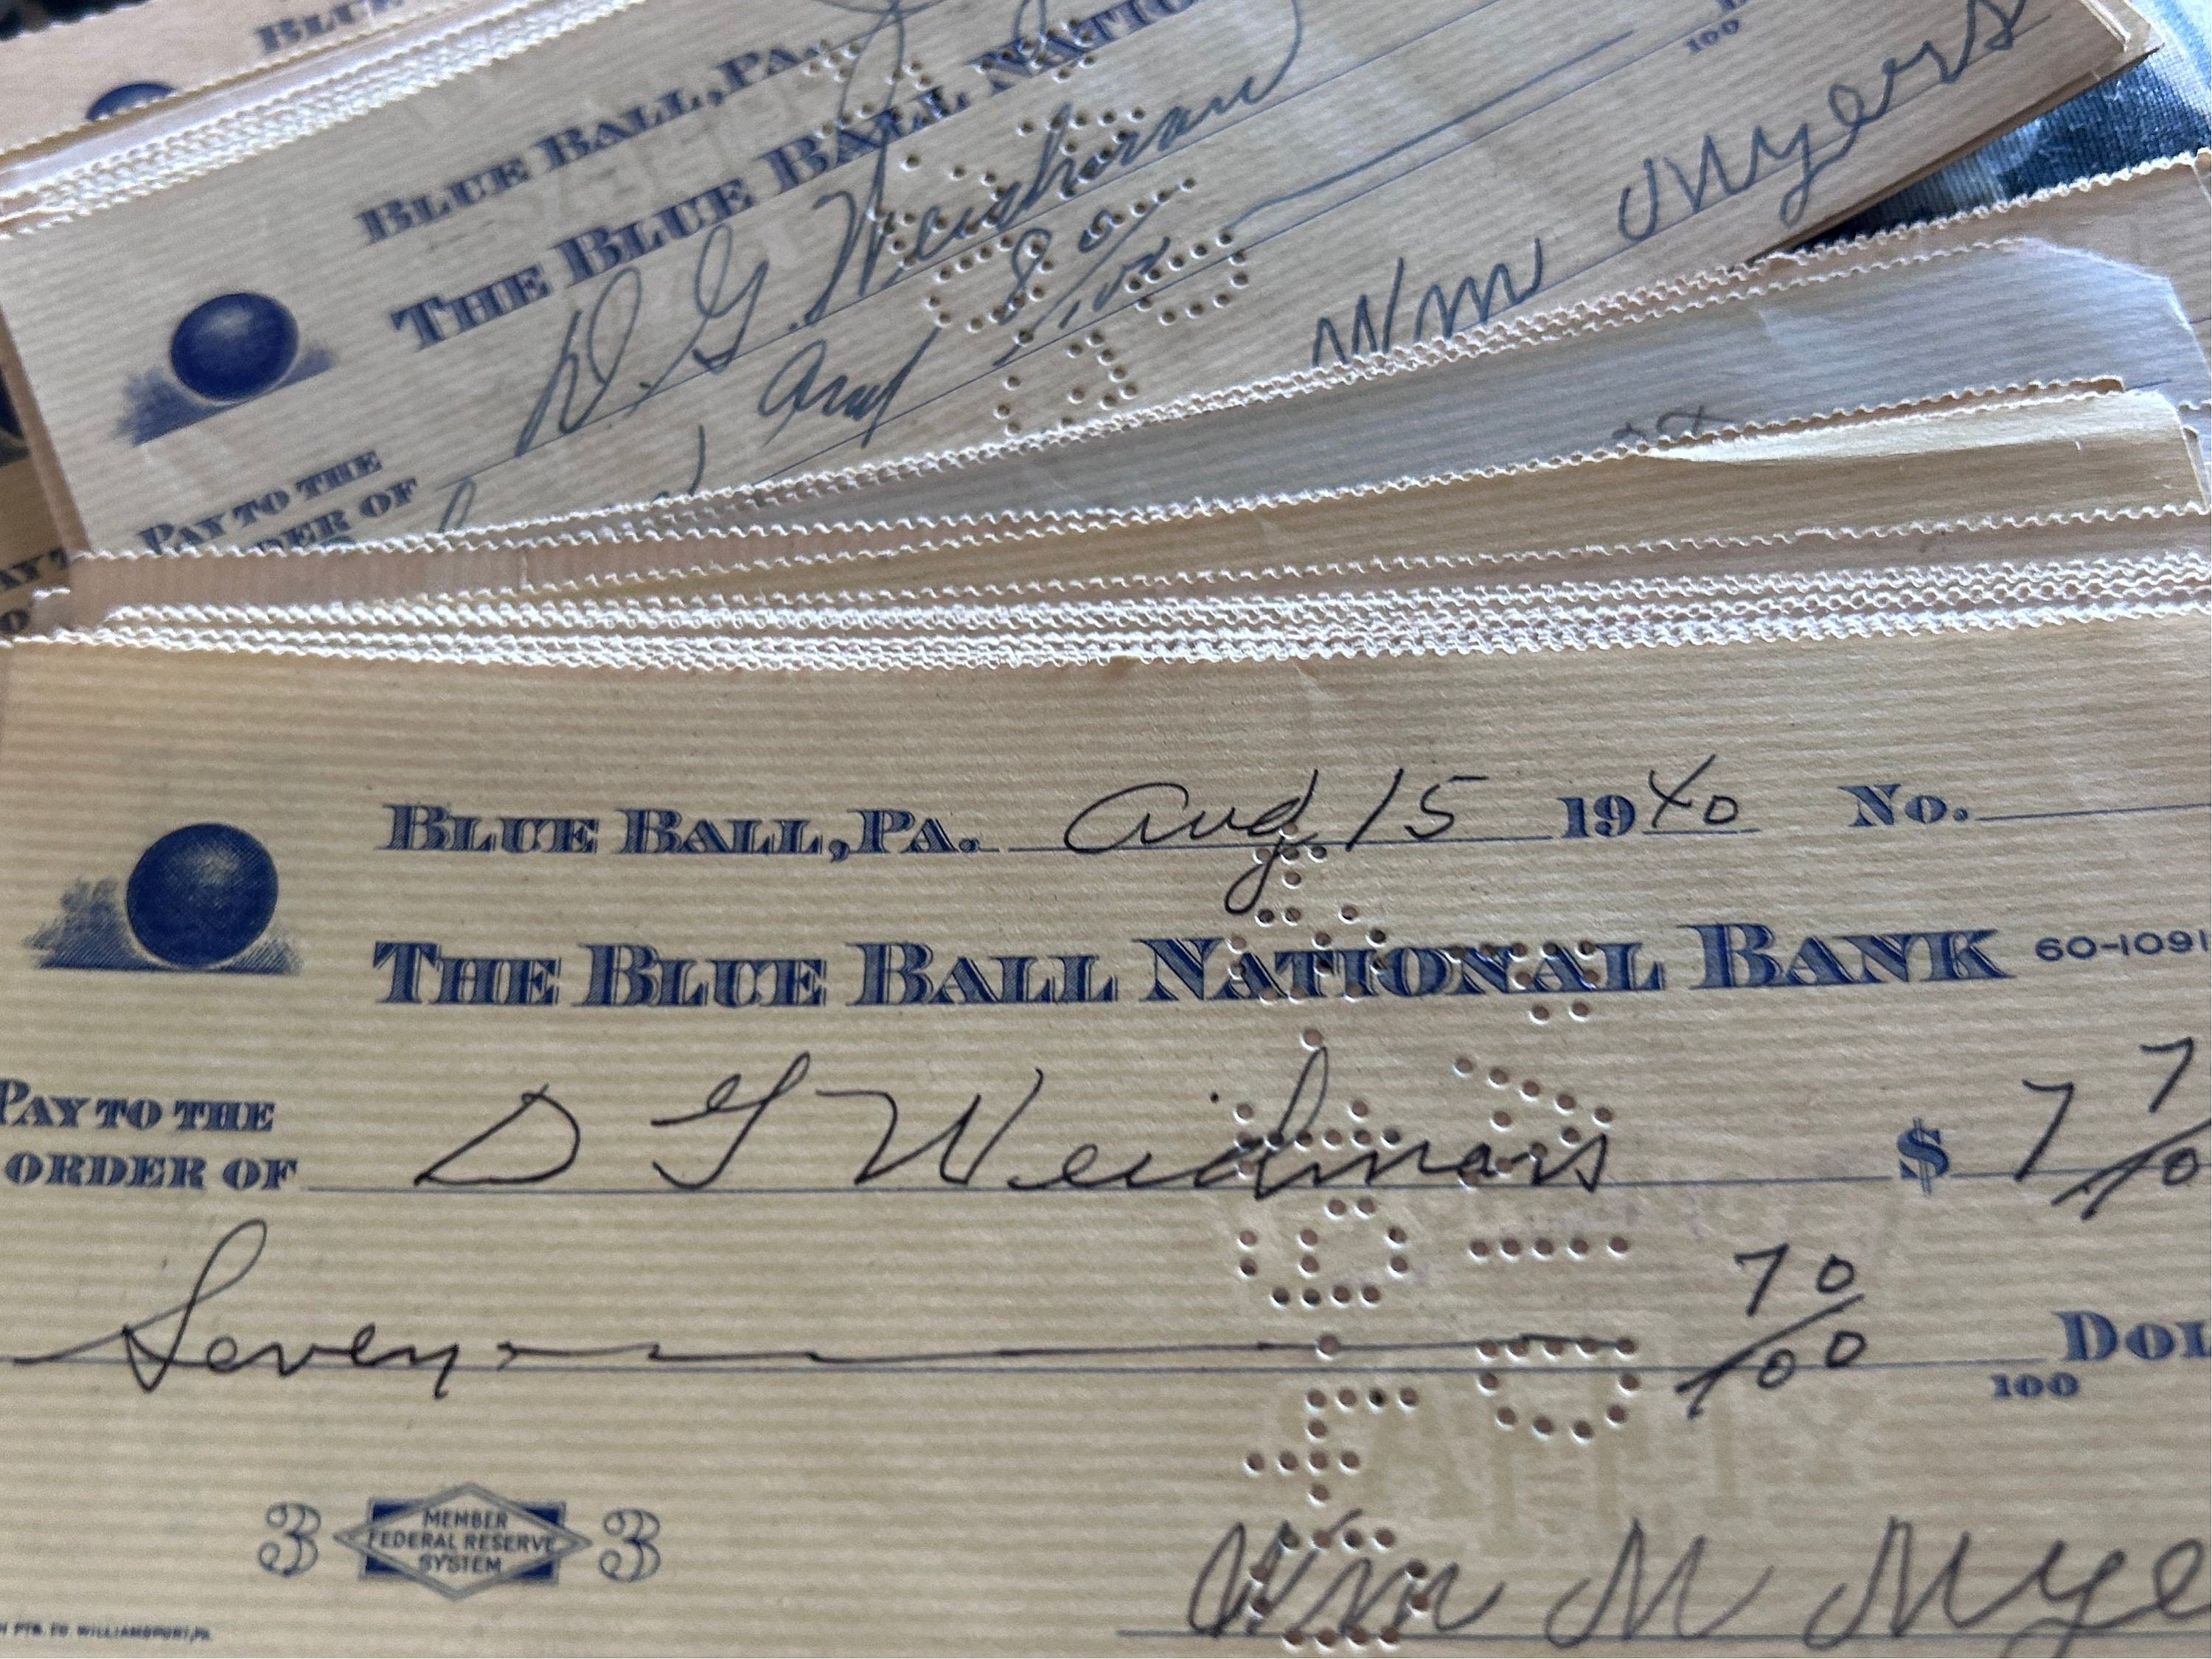 BLUE
BLUE BALL, PA.
THE BLUE BALL NATIO
D. G. Weidman
and 80/100
100
PAY TO THE
ORDER OF
Wm Myers
BLUE BALL, PA. Aug 15 1940 No.
THE BLUE BALL NATIONAL BANK 60-1091
PAY TO THE
ORDER OF D G Weidman $ 7 7/10
Seven 70/100 DOL
100
3 MEMBER FEDERAL RESERVE SYSTEM 3
Wm M Mye
PTG. CO. WILLIAMSPORT, PA.